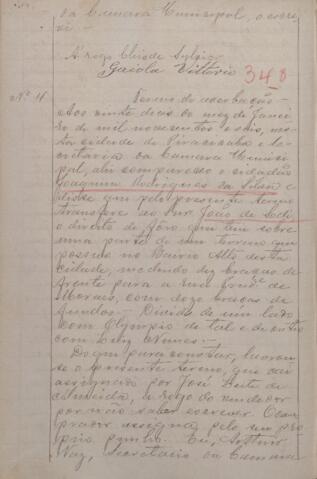 da Camara Municipal, o escre
vi.
A rogo Chiede Sylvio
Gaiola Vittorio 348
Nº 4 Termo de averbação
Aos vinte dias do mez de Janei
ro de mil novecentos e seis, nes
ta cidade de Piracicaba e Se
cretaria da Camara Munici
pal, ahi compareceo o cidadão
Joaquim Rodrigues da Silva e
disse que pelo presente termo
transfere ao Snr. João de
o direito de fôro que tem sobre
uma parte de um terreno que
possue no Bairro Alto desta
cidade, medindo dez braças de
frente para a rua Prude de
Moraes, com doze braças de
fundos. Divide de um lado
com Olympio de tal e de outro
com Luiz Nunes.
Do que para constar, lavrou-
se o presente termo, que vai
assignado por José Leite de
Almeida, a rogo do vendedor
por não saber escrever. O com
prador assigna pelo seu pro
prio punho. Eu, Arthur
Vaz, Secretario da Camara